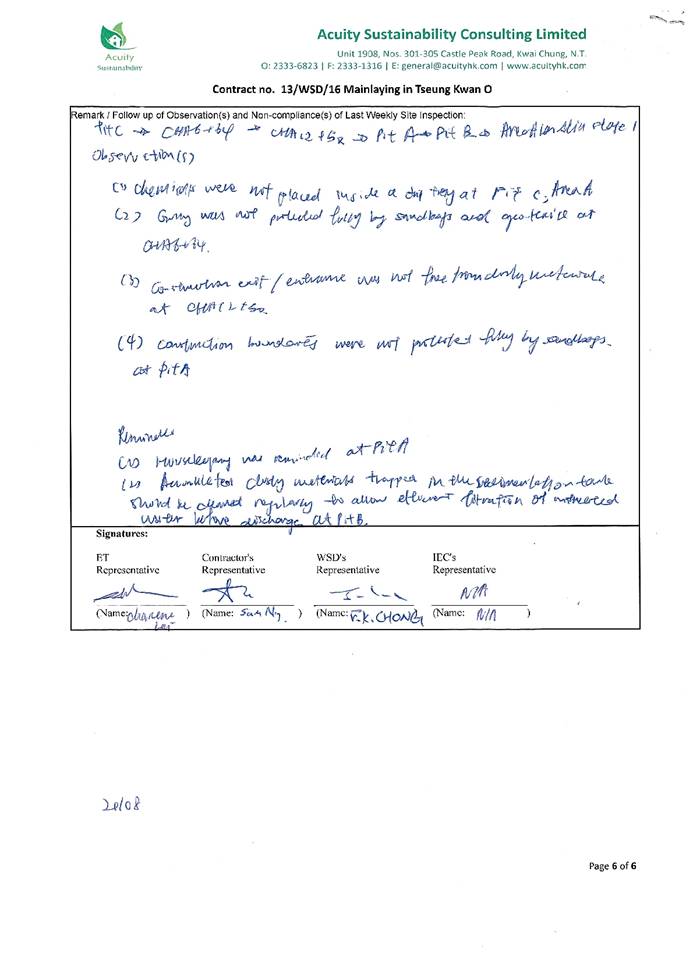 Acuity Sustainability Consulting Limited
Acuity
Sustainability
Unit 1908, Nos. 301-305 Castle Peak Road, Kwai Chung, N.T.
O: 2333-6823 | F: 2333-1316 | E: general@acuityhk.com | www.acuityhk.com
Contract no. 13/WSD/16 Mainlaying in Tseung Kwan O
Remark / Follow up of Observation(s) and Non-compliance(s) of Last Weekly Site Inspection:
Pit C → CHA6+34 → → Pit A → Pit B →
Observation(s)
(1) Chemicals were not placed inside a drip tray at Pit C, Area A
(2) Gully was not protected fully by sandbags and geo-textile at
CHA6+34.
(3) Construction exit / entrance was not free from dusty materials
at
(4) Construction boundaries were not protected fully by sandbags
at Pit A
Reminders
(1) Housekeeping was reminded at Pit A
(2) Accumulated dusty materials trapped in the sedimentation tank
should be cleaned regularly to allow efficient filtration of
water before discharge at Pit B.
Signatures:
ET Contractor's WSD's IEC's
Representative Representative Representative Representative
N/A
(Name: ) (Name: Sam Ng ) (Name: F.K. CHONG (Name: N/A )
Page 6 of 6